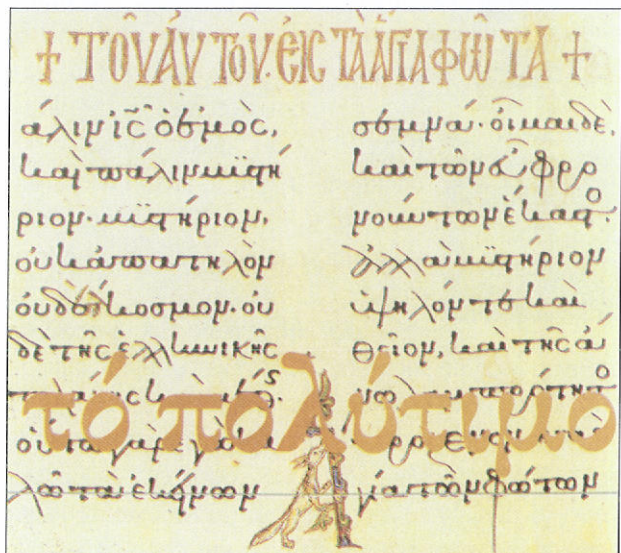 + ΤΟῦ ΑΥΤΟῦ. ΕἰC ΤᾺ ἍΓΙΑ ΦῶΤΑ +
άλιν ἰ̅ς̅ ὁ ἐμὸς,
καὶ πάλιν μυστή
ριον· μυστήριον,
οὐκ ἀπατηλὸν
οὐδὲ ἄκοσμον· οὐ
δὲ τῆς ἑλληνικῆς
οὕτω γὰρ ἐγὼ κα
λῶ τὰ ἐκείνων
σεμνά· οἶμαι δὲ,
καὶ τῶν εὖ φρο
νούντων ἕκαστο
ἀλλὰ μυστήριον
ὑψηλόν τε καὶ
θεῖον, καὶ τῆς ἄ
γία τῶν φώτων
τό πολύτιμο